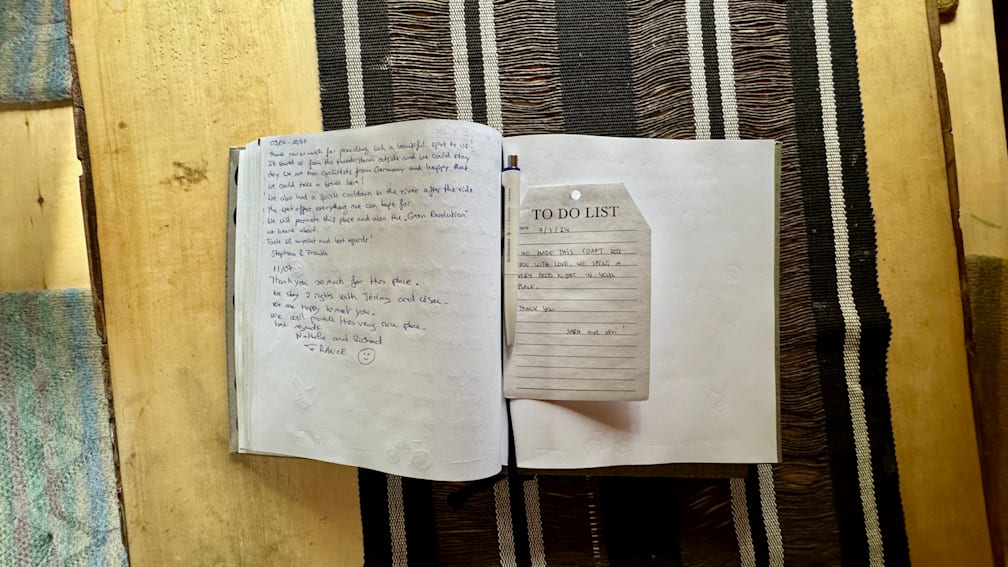 09/07 - 10/07
Thank you so much for providing such a beautiful spot to us!
It saved us from the thunderstorm outside and we could stay
dry. We are two cyclists from Germany and happy that
we could take a break here!
We also had a quick cooldown in the river after the ride
The spot offers everything one can hope for.
We will promote this place and also the "Green Revolution"
we heard about.
Take care and best regards!
Stephan &
11/07
Thank you so much for this place.
We stay 2 nights with and
We are happy to met you.
We will promote this very nice place.
best regards
Nathalie and Richard
FRANCE
TO DO LIST
DATE 7/7/24
WE MADE THIS CRAFT FOR
YOU WITH LOVE. WE SPENT A
VERY GOOD NIGHT IN YOUR
PLACE.
THANK YOU
SARA and
Schneider